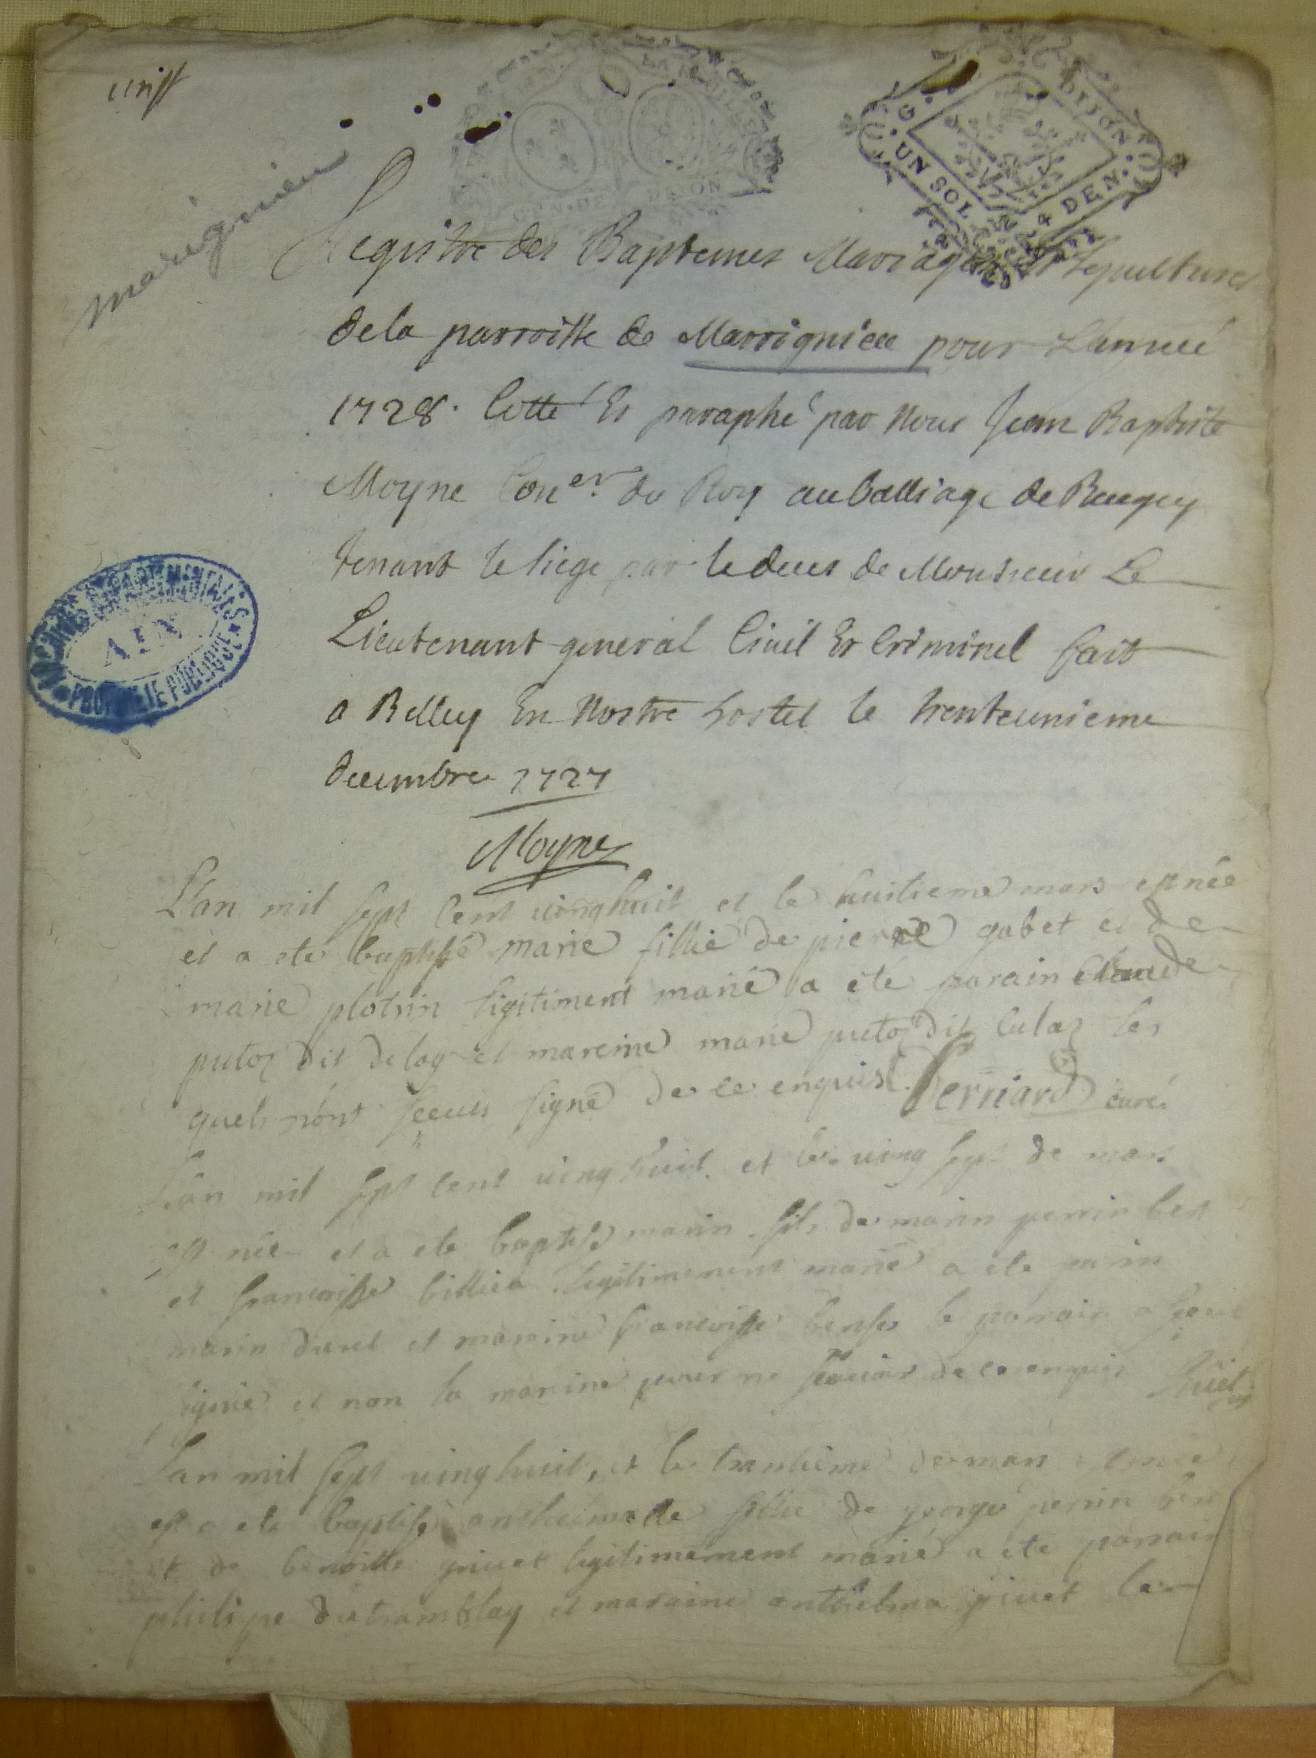 marignieu
G. DIJON
UN SOL 4 DEN.
GEN. DE DIJON
Registre des Baptemes Mariages Et Sepultures
de la parroisse de Marrignieu pour L'année
1728. Cotté Et paraphé par Nous Jean Baptiste
Moyne Con.er du Roy au balliage de Beugey
tenant le siege par le deces de Monsieur Le
Lieutenant general Civil Et Criminel fait
a Belley En Nostre hostel le trenteunieme
decembre 1727
Moyne
ARCHIVES DEPARTEMENTALES
AIN
PROPRIETE PUBLIQUE
L'an mil sept cent vinghuit et le huitieme mars est née
et a ete baptisé marie fillie de pierre gabet et de
marie plotrin legitiment marié a eté parain Claude
putoz dit delog et mareine marie putoz dit culaz les
quels n'ont sceus signé de ce enquis. Bernard curé
L'an mil sept cent vinghuit et le ving sept de mars
est née et a ete baptisé marin fils de marin perrin bert
et francoisse billieu legitimement marié a ete parin
marin duret et marine francoisse le parrain a
signé et non la marine pour ne scavoir de ce enquis
L'an mil sept vinghuit, et le trantieme de mars est née
et a ete baptisé anthelmette fillie de george perrin bert
et de benoitte privet legitimement marié a ete parrain
philipe du tramblay et maraine anthelma privet les